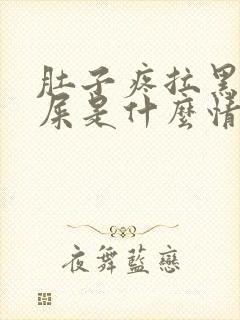 肚子疼拉黑
屎是什麼情
夜舞藍戀